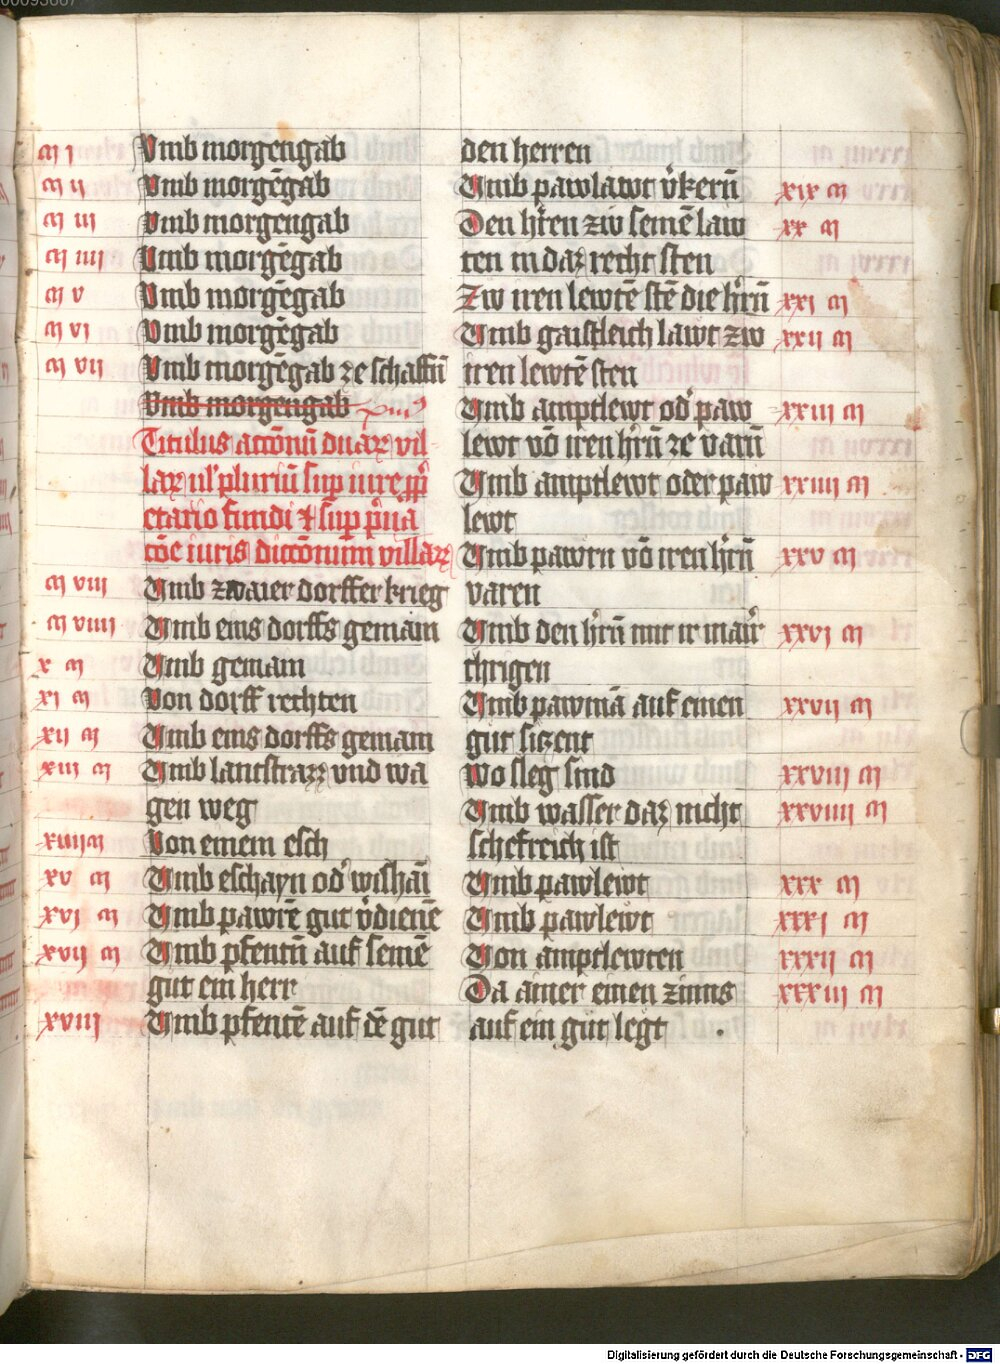 00095667
m i Vmb morgengab
m ii Vmb morgēgab
m iii Vmb morgengab
m iiii Vmb morgēgab
m v Vmb morgēgab
m vi Vmb morgēgab
m vii Vmb morgēgab ze schaffñ
Vmb morgengab
Titulus accōnū duaꝝ vil
laꝝ ul' pluriū sup iure
etario fundi ⁊ sup
cōe iuris diccōnum villaꝝ
m viii Vmb zwaier dorffer krieg
m viiii Vmb eins dorffs gemain
x m Vmb gemain
xi m Von dorff rechten
xii m Vmb eins dorffs gemain
xiii m Vmb lantstrazz vnd wa
gen weg
xiiii m Von einem esch
xv m Vmb eschayn od' wishāi
xvi m Vmb pawrē gut v'dienē
xvii m Vmb pfentñ auf seinē
gut ein herr
xviii Vmb pfentē auf dē gut
den herren
Vmb pawlawt v'kerñ xix m
Den h'ren zw seinē law xx m
ten in daz recht sten
Zw iren lewtē stē die h'rñ xxi m
Vmb gaistleich lawt zw xxii m
iren lewtē sten
Vmb amptlewt od' paw xxiii m
lewt vō iren h'rñ ze varñ
Vmb amptlewt oder paw xxiiii m
lewt
Vmb pawrn vō iren h'rñ xxv m
varen
Vmb den h'rñ mit ir mair xxvi m
thrigen
Vmb pawmā auf einen xxvii m
gut siczent
Wo steg sind xxviii m
Vmb wasser daz nicht xxviiii m
schefreich ist
Vmb pawlewt xxx m
Vmb pawlewt xxxi m
Von amptlewten xxxii m
Da ainer einen zinns xxxiii m
auf ein gut legt .
Digitalisierung gefördert durch die Deutsche Forschungsgemeinschaft - DFG